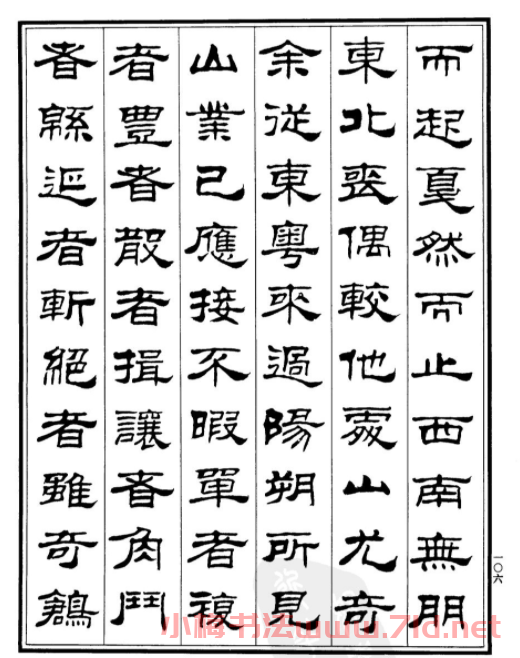 而起戛然而止西南無朋
東北喪偶較他處山尤奇
余從東粵來過陽朔所見
山業已應接不暇單者複
者豊者散者揖讓者角鬥
者緜延者斬絕者雖奇鶬
一〇六
小梅书法www.7ld.net